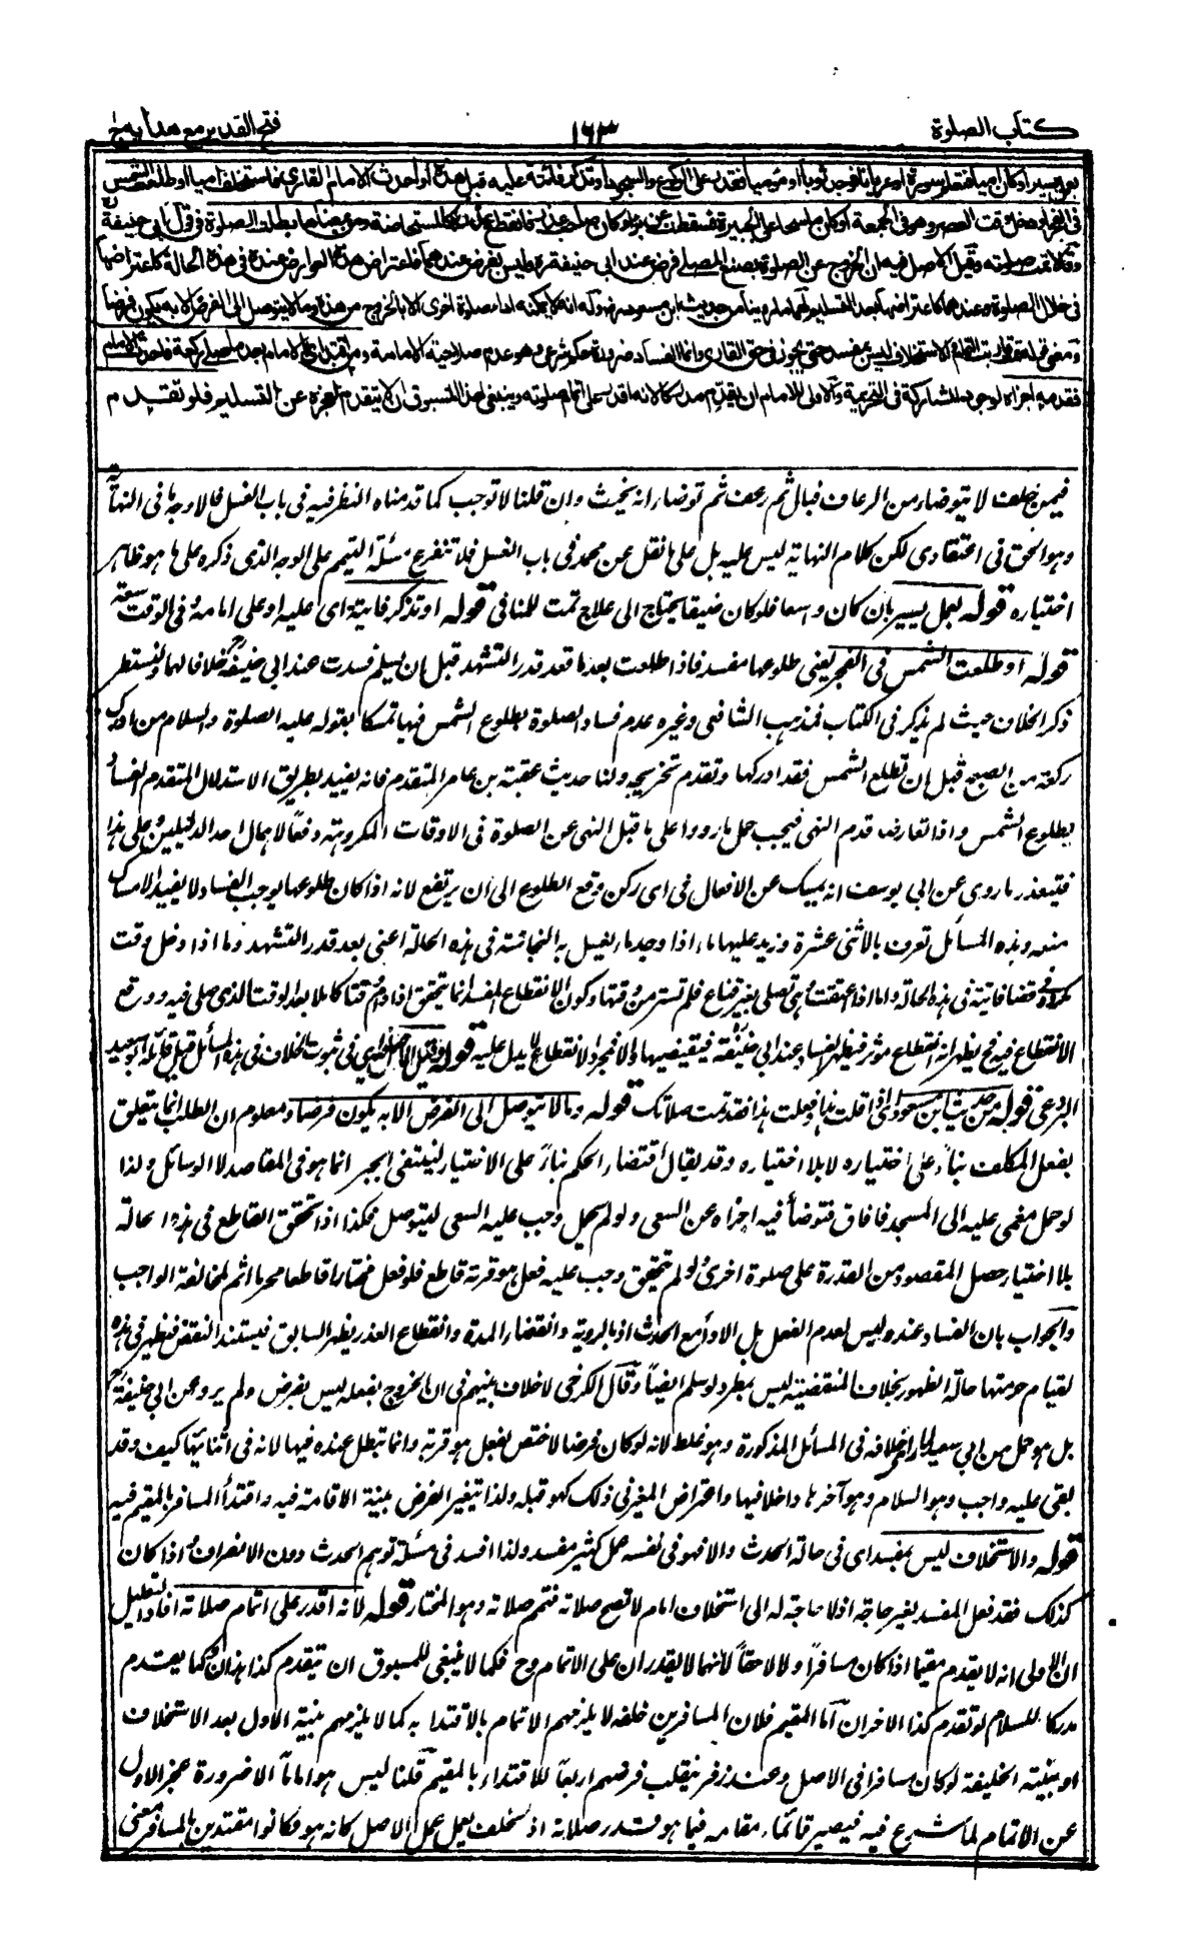 كتاب الصلوة
١٦٣
فتح القدير مع هدايه ج
بعمل يسير او كان اميا فتعلم سورة او عريانا فوجد ثوبا او موميا فقدر على الركوع والسجود او تذكر فائتة عليه قبل هذه او احدث الامام القارئ فاستخلف اميا او طلعت الشمس
في الفجر او دخل وقت العصر وهو في الجمعة او كان ماسحا على الجبيرة فسقطت عن برء او كان صاحب عذر فانقطع عذره كالمستحاضة ومن بمعناها بطلت الصلوة في قول ابي حنيفة
وقالا تمت صلوته وقيل الاصل فيه ان الخروج عن الصلوة بصنع المصلي فرض عند ابي حنيفة وليس بفرض عندهما فاعتراض هذه العوارض عنده في هذه الحالة كاعتراضها
في خلال الصلوة وعندهما كاعتراضها بعد التسليم لهما ما روينا من حديث ابن مسعود وله انه لا يمكنه اداء صلوة اخرى الا بالخروج من هذه وما لا يتوصل الى الفرض الا به يكون فرضا
ومعنى قوله تمت قاربت التمام والاستخلاف ليس بمفسد حتى يجوز في حق القارئ وانما الفساد ضرورة حكم شرعي وهو عدم صلاحية الامامة ومن اقتدى بالامام بعد ما صلى ركعة فاحدث الامام
فقدمه اجزاه لوجود المشاركة في التحريمة والاولى للامام ان يقدم مدركا لانه اقدر على اتمام صلوته وينبغي لهذا المسبوق ان لا يتقدم لعجزه عن التسليم فلو تقدم م
فيمن حلف لا يتوضأ من الرعاف فبال ثم رعف ثم توضأ انه يحنث وان قلنا لا توجب كما قدمناه النظر فيه في باب الغسل فالاوجه ما في النهاية
وهو الحق في اعتقادي لكن كلام النهاية ليس عليه بل على ما نقل عن محمد في باب الغسل فلا تتفرع مسئلة التيمم على الوجه الذي ذكره على ما هو ظاهر
اختياره قوله بعمل يسير بان كان واسعا فلو كان ضيقا يحتاج الى علاج تمت للمنافي قوله او تذكر فائتة اي عليه او على امامه وفي الوقت سعة
قوله او طلعت الشمس في الفجر يعني طلوعها مفسد فاذا طلعت بعد ما قعد قدر التشهد قبل ان يسلم فسدت عند ابي حنيفة خلافا لهما ولنستطر
ذكر الخلاف حيث لم يذكر في الكتاب فمذهب الشافعي وغيره عدم فساد الصلوة بطلوع الشمس فيها تمسكا بقوله عليه الصلوة والسلام من ادرك
ركعة من الصبح قبل ان تطلع الشمس فقد ادركها وتقدم تخريجه ولنا حديث عقبة بن عامر المتقدم فانه يفيد بطريق الاستدلال المتقدم الفساد
بطلوع الشمس واذا تعارضا قدم النهي فيجب حمل ما رووا على ما قبل النهي عن الصلوة في الاوقات المكروهة دفعا لاهمال احد الدليلين وعلى هذا
فيتعذر ما روي عن ابي يوسف انه يمسك عن الافعال في اي ركن وقع الطلوع الى ان يرتفع لانه اذا كان طلوعها يوجب الفساد لا يفيد الامساك
منعه وهذه المسائل تعرف بالاثني عشرة وزيد عليها ما اذا وجد ما يغسل به النجاسة في هذه الحالة اعني بعد قدر التشهد وما اذا دخل وقت
مكروه في قضاء فائتة في هذه الحالة واما اذا عتقت وهي تصلي بغير قناع فلم تستر من وقتها وكون الانقطاع المفسد انما يتحقق اذا دام وقتا كاملا بعد الوقت الذي صلى فيه ووقع
الانقطاع فيه فح يظهر انه انقطاع مؤثر فيظهر الفساد عند ابي حنيفة فيقضيها والا فمجرد الانقطاع لا يدل عليه قوله وقيل الاصل اي في ثبوت الخلاف في هذه المسائل قيل قائله ابو سعيد
البردعي قوله من حديث ابن مسعود اي اذا قلت هذا او فعلت هذا فقد تمت صلاتك قوله وما لا يتوصل الى الفرض الا به يكون فرضا ومعلوم ان الطلب انما يتعلق
بفعل المكلف بناء على اختياره لا بلا اختياره وقد يقال اقتضاء الحكم بناء على الاختيار لينتفي الجبر انما هو في المقاصد لا الوسائل ولذا
لو حمل مغمى عليه الى المسجد فافاق فتوضأ فيه اجزاه عن السعي ولو لم يحمل وجب عليه السعي ليتوصل فكذا اذا تحقق القاطع في هذه الحالة
بلا اختيار حصل المقصود من القدرة على صلوة اخرى ولو لم يتحقق وجب عليه فعل هو قربة قاطع فلو فعل مختارا قاطعا محرما اثم لمخالفة الواجب
والجواب بان الفساد عنده ليس لعدم الفعل بل الاداء مع الحدث اذ بالرؤية وانقضاء المدة وانقطاع العذر يظهر السابق فيستند النقض فيظهر في هذه
لقيام حرمتها حالة الظهور بخلاف المنقضية ليس بمطرد لو سلم ايضا وقال الكرخي لا خلاف بينهم في ان الخروج بفعله ليس بفرض ولم يرو عن ابي حنيفة
بل هو حمل من ابي سعيد لما رأى خلافه في المسائل المذكورة وهو غلط لانه لو كان فرضا لاختص بفعل هو قربة وانما تبطل عنده فيها لانه في اثنائها كيف وقد
بقي عليه واجب وهو السلام وهو آخرها داخلا فيها واعتراض المغير في ذلك كهو قبله ولذا تغير الفرض بنية الاقامة فيه واقتداء المسافر بالمقيم فيه
قوله والاستخلاف ليس بمفسد اي في حالة الحدث والا فهو في نفسه عمل كثير مفسد ولذا افسد في مسئلة توهم الحدث دون الانصراف اذا كان
كذلك فقد فعل المفسد بغير حاجة اذ لا حاجة له الى استخلاف امام لا تصح صلاته فتتم صلاته وهو المختار قوله لانه اقدر على اتمام صلاته افاد التعليل
ان الاولى انه لا يقدم مقيما اذا كان مسافرا ولا لاحقا لانهما لا يقدران على الاتمام وح فكما لا ينبغي للمسبوق ان يتقدم كذا هذان وكما يقدم
مدركا للسلام لو تقدم كذا الاخران اما المقيم فلان المسافرين خلفه لا يلزمهم الاتمام بالاقتداء به كما لا يلزمهم بنية الاول بعد الاستخلاف
او بنية الخليفة لو كان مسافرا في الاصل وعند زفر ينقلب فرضهم اربعا للاقتداء بالمقيم قلنا ليس هو اماما الا ضرورة عجز الاول
عن الاتمام لما شرع فيه فيصير قائما مقامه فيما هو قدر صلاته اذ الخلف يعمل عمل الاصل كانه هو فكانوا مقتدين بالمسافر معنى